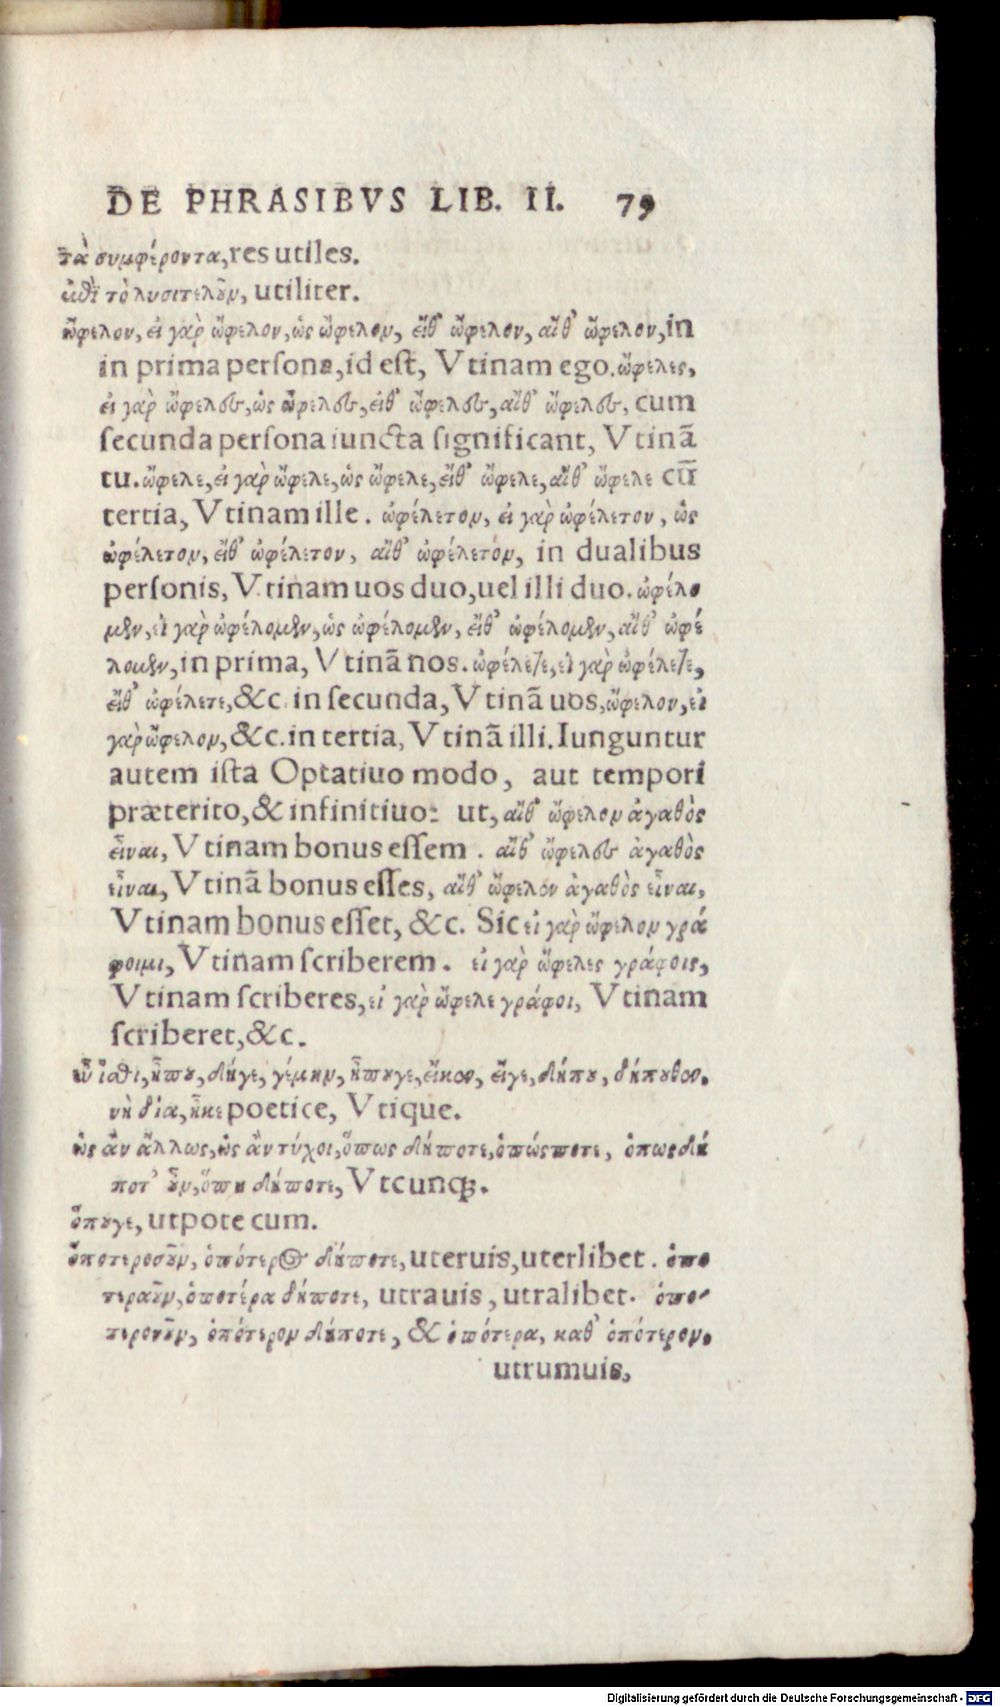 DE PHRASIBVS LIB. II. 79
τὰ συμφέροντα, res utiles.
τὸ λυσιτελοῦν, utiliter.
ὤφελον, εἰ γὰρ ὤφελον, ὡς ὤφελον, εἴθ' ὤφελον, αἴθ' ὤφελον, in
in prima persona, id est, Vtinam ego. ὤφελες,
εἰ γὰρ ὤφελες, ὡς ὤφελες, εἴθ' ὤφελες, αἴθ' ὤφελες, cum
secunda persona iuncta significant, Vtinã
tu. ὤφελε, εἰ γὰρ ὤφελε, ὡς ὤφελε, εἴθ' ὤφελε, αἴθ' ὤφελε cũ
tertia, Vtinam ille. ὠφέλετον, εἰ γὰρ ὠφέλετον, ὡς
ὠφέλετον, εἴθ' ὠφέλετον, αἴθ' ὠφέλετον, in dualibus
personis, Vtinam uos duo, uel illi duo. ὠφέλο
μεν, εἰ γὰρ ὠφέλομεν, ὡς ὠφέλομεν, εἴθ' ὠφέλομεν, αἴθ' ὠφέ
λομεν, in prima, Vtinã nos. ὠφέλετε, εἰ γὰρ ὠφέλετε,
εἴθ' ὠφέλετε, &c. in secunda, Vtinã uos, ὤφελον, εἰ
γὰρ ὤφελον, &c. in tertia, Vtinã illi. Iunguntur
autem ista Optatiuo modo, aut tempori
præterito, & infinitiuo: ut, αἴθ' ὤφελον ἀγαθὸς
εἶναι, Vtinam bonus essem. αἴθ' ὤφελες ἀγαθὸς
εἶναι, Vtinã bonus esses, αἴθ' ὤφελον ἀγαθὸς εἶναι,
Vtinam bonus esset, &c. Sic εἰ γὰρ ὤφελον γρά
φοιμι, Vtinam scriberem. εἰ γὰρ ὤφελες γράφοις,
Vtinam scriberes, εἰ γὰρ ὤφελε γράφοι, Vtinam
scriberet, &c.
εὖ ἴσθι, ἦπου, δήγε, γέμην, ἦπουγε, εἴκον, εἴγε, δήπου, δήπουθον.
νὴ δία, ἦκε poetice, Vtique.
ὡς ἂν ἄλλως, ὡς ἂν τύχοι, ὅπως δήποτε, ὁπώσποτε, ὁπωσδή
ποτ' οὖν, ὅπη δήποτε, Vtcunq;.
ὅπουγε, utpote cum.
ὁποτεροσοῦν, ὁπότερος δήποτε, uteruis, uterlibet. ὁπο
τεραοῦν, ὁποτέρα δήποτε, utrauis, utralibet. ὁπο-
τερονοῦν, ὁπότερον δήποτε, & ὁπότερα, καθ' ὁπότερον.
utrumuis,
Digitalisierung gefördert durch die Deutsche Forschungsgemeinschaft - DFG